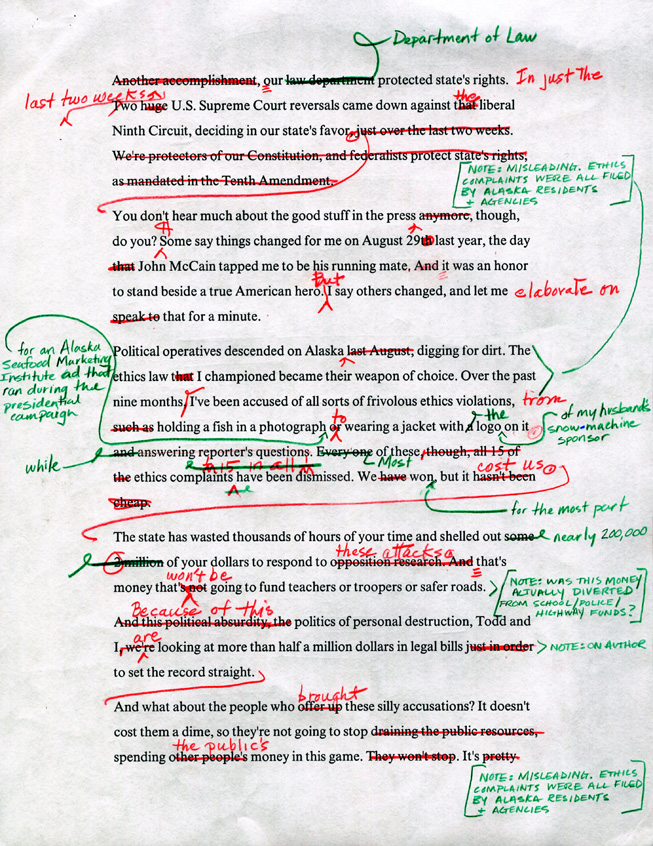 Department of Law
Another accomplishment, our law department protected state's rights. In just the
last two weeks
Two huge U.S. Supreme Court reversals came down against that the liberal
Ninth Circuit, deciding in our state's favor, just over the last two weeks.
We're protectors of our Constitution, and federalists protect state's rights,
as mandated in the Tenth Amendment.
NOTE: MISLEADING. ETHICS
COMPLAINTS WERE ALL FILED
BY ALASKA RESIDENTS
+ AGENCIES
You don't hear much about the good stuff in the press anymore, though,
do you? Some say things changed for me on August 29th last year, the day
that John McCain tapped me to be his running mate. And it was an honor
But
to stand beside a true American hero. I say others changed, and let me elaborate on
speak to that for a minute.
for an Alaska
Seafood Marketing
Institute ad that
ran during the
presidential
campaign
Political operatives descended on Alaska last August, digging for dirt. The
ethics law that I championed became their weapon of choice. Over the past
nine months I've been accused of all sorts of frivolous ethics violations, from
to the of my husband's
such as holding a fish in a photograph or wearing a jacket with a logo on it snow-machine
sponsor
while and answering reporter's questions. Everyone of these, though, all 15 of
Most
to 15 in all cost us
the ethics complaints have been dismissed. We have won, but it hasn't been
cheap.
for the most part
The state has wasted thousands of hours of your time and shelled out some nearly 200,000
these attacks
2 million of your dollars to respond to opposition research. And that's
won't be
money that's not going to fund teachers or troopers or safer roads.
NOTE: WAS THIS MONEY
ACTUALLY DIVERTED
FROM SCHOOL/POLICE/
HIGHWAY FUNDS?
Because of this
And this political absurdity, the politics of personal destruction, Todd and
are
I, we're looking at more than half a million dollars in legal bills just in order NOTE: ON AUTHOR
to set the record straight.
brought
And what about the people who offer up these silly accusations? It doesn't
cost them a dime, so they're not going to stop draining the public resources,
the public's
spending other people's money in this game. They won't stop. It's pretty
NOTE: MISLEADING. ETHICS
COMPLAINTS WERE ALL FILED
BY ALASKA RESIDENTS
+ AGENCIES